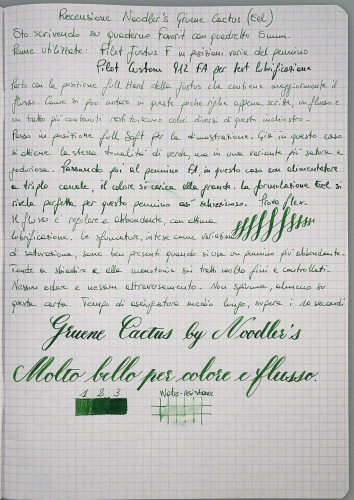 Recensione Noodler's Gruene Cactus (Eel)
Sto scrivendo su quaderno Favorit con quadretto 5mm.
Penne utilizzate: Pilot Justus F in posizioni varie del pennino
Pilot Custom 912 FA per test lubrificazione
Parto con la posizione full Hard della Justus che contiene maggiormente il
flusso. Come si può notare in queste poche righe appena scritte, un flusso e
un tratto più contenuti restituiscono colori diversi di questo inchiostro.
Passo in posizione full Soft per la dimostrazione. Già in questo caso
si ottiene la stessa tonalità di verde, ma in una variante più satura e
poderosa. Passando poi al pennino FA, in questo caso con alimentatore
a triplo canale, il colore si carica alla grande. La formulazione Eel si
rivela perfetta per questo pennino così schizzinoso. Prova flex.
Il flusso è regolare e abbondante, con ottima
lubrificazione. Le sfumature, intese come variazioni
di saturazione, sono ben presenti quando si usa un pennino più abbondante.
Tende a sbiadire e alla monotonia sui tratti molto fini e controllati.
Nessun odore e nessun attraversamento. Non spiuma, almeno su
questa carta. Tempo di asciugatura medio lungo, supera i 20 secondi
Gruene Cactus by Noodler's
Molto bello per colore e flusso.
1 2 3 Water-resistance